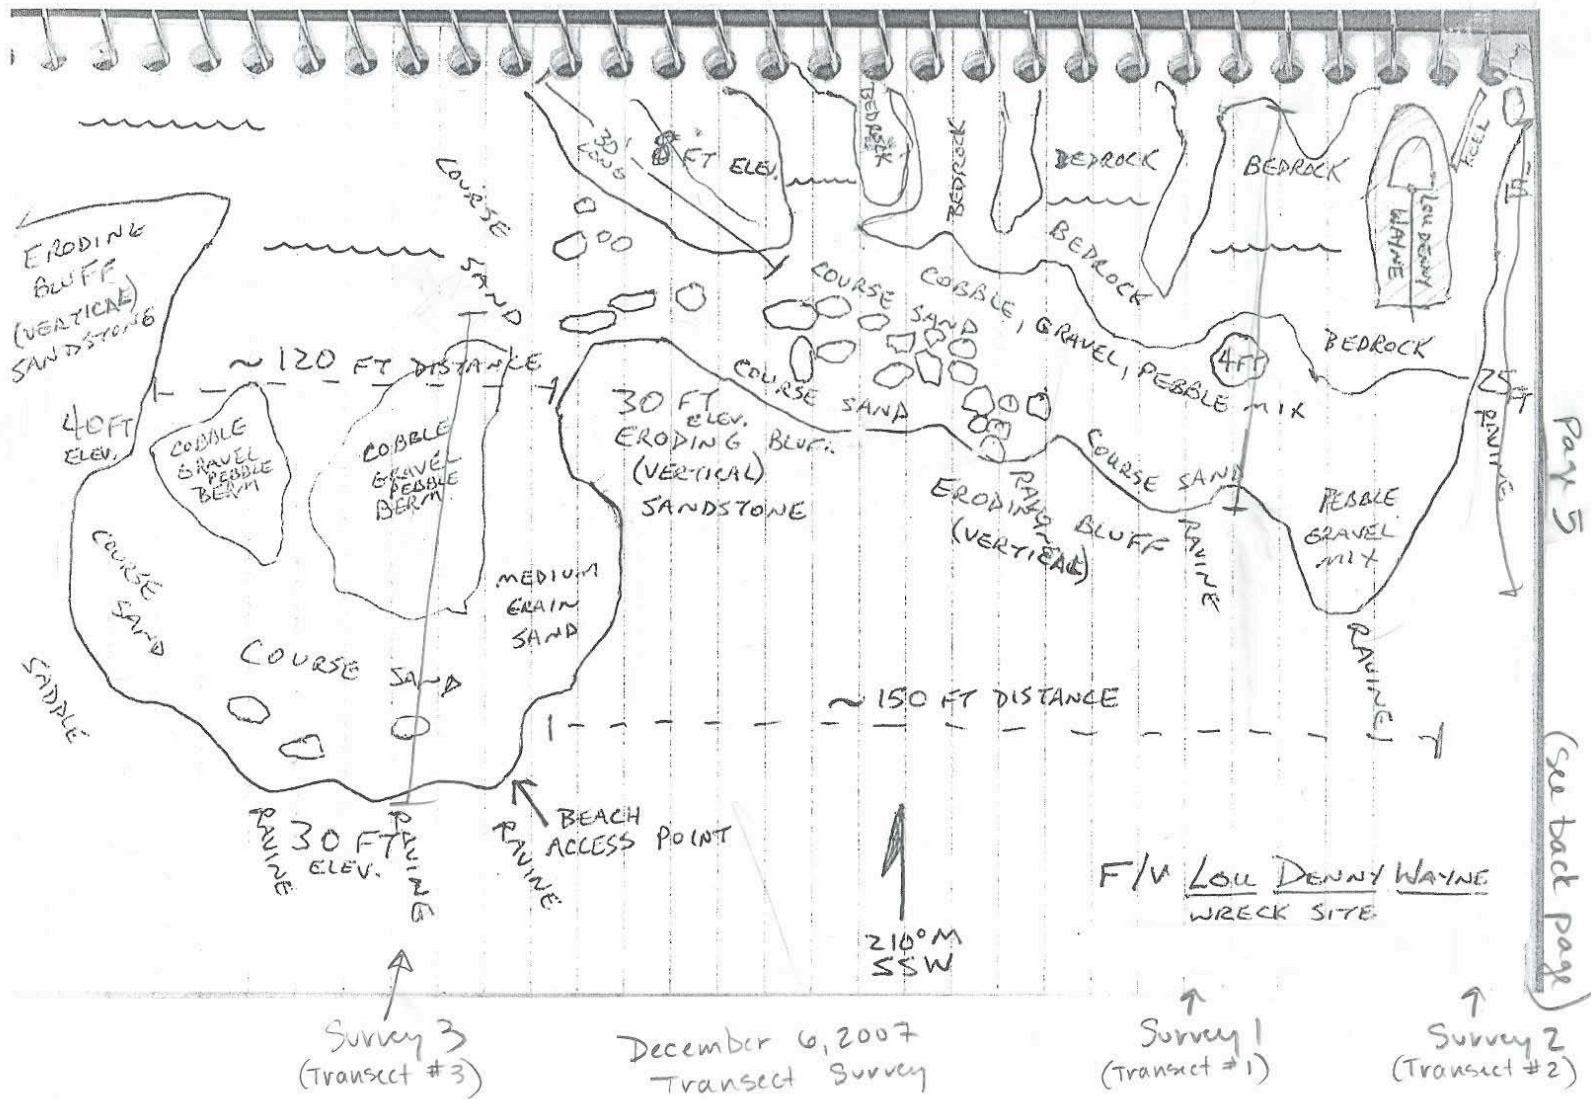 ERODING
BLUFF
(VERTICAL)
SANDSTONE
40 FT
ELEV.
~ 120 FT DISTANCE
COBBLE
GRAVEL
PEBBLE
BERM
COBBLE
GRAVEL
PEBBLE
BERM
COURSE
SAND
COURSE
SAND
SADDLE
COURSE SAND
MEDIUM
GRAIN
SAND
RAVINE
30 FT
ELEV.
RAVINE
RAVINE
BEACH
ACCESS POINT
30'
LONG
8 FT ELEV.
BEDROCK
BEDROCK
BEDROCK
BEDROCK
BEDROCK
BEDROCK
LOU DENNY
WAYNE
KEEL
COURSE
SAND
COBBLE, GRAVEL, PEBBLE MIX
4 FT
COURSE SAND
30 FT
ELEV.
ERODING BLUFF
(VERTICAL)
SANDSTONE
COURSE SAND
RAVINE
ERODING BLUFF
(VERTICAL)
RAVINE
PEBBLE
GRAVEL
MIX
RAVINE
25 FT
RAVINE
~ 150 FT DISTANCE
210° M
SSW
F/V LOU DENNY WAYNE
WRECK SITE
Page 5
(see back page)
Survey 3
(Transect #3)
December 6, 2007
Transect Survey
Survey 1
(Transect #1)
Survey 2
(Transect #2)